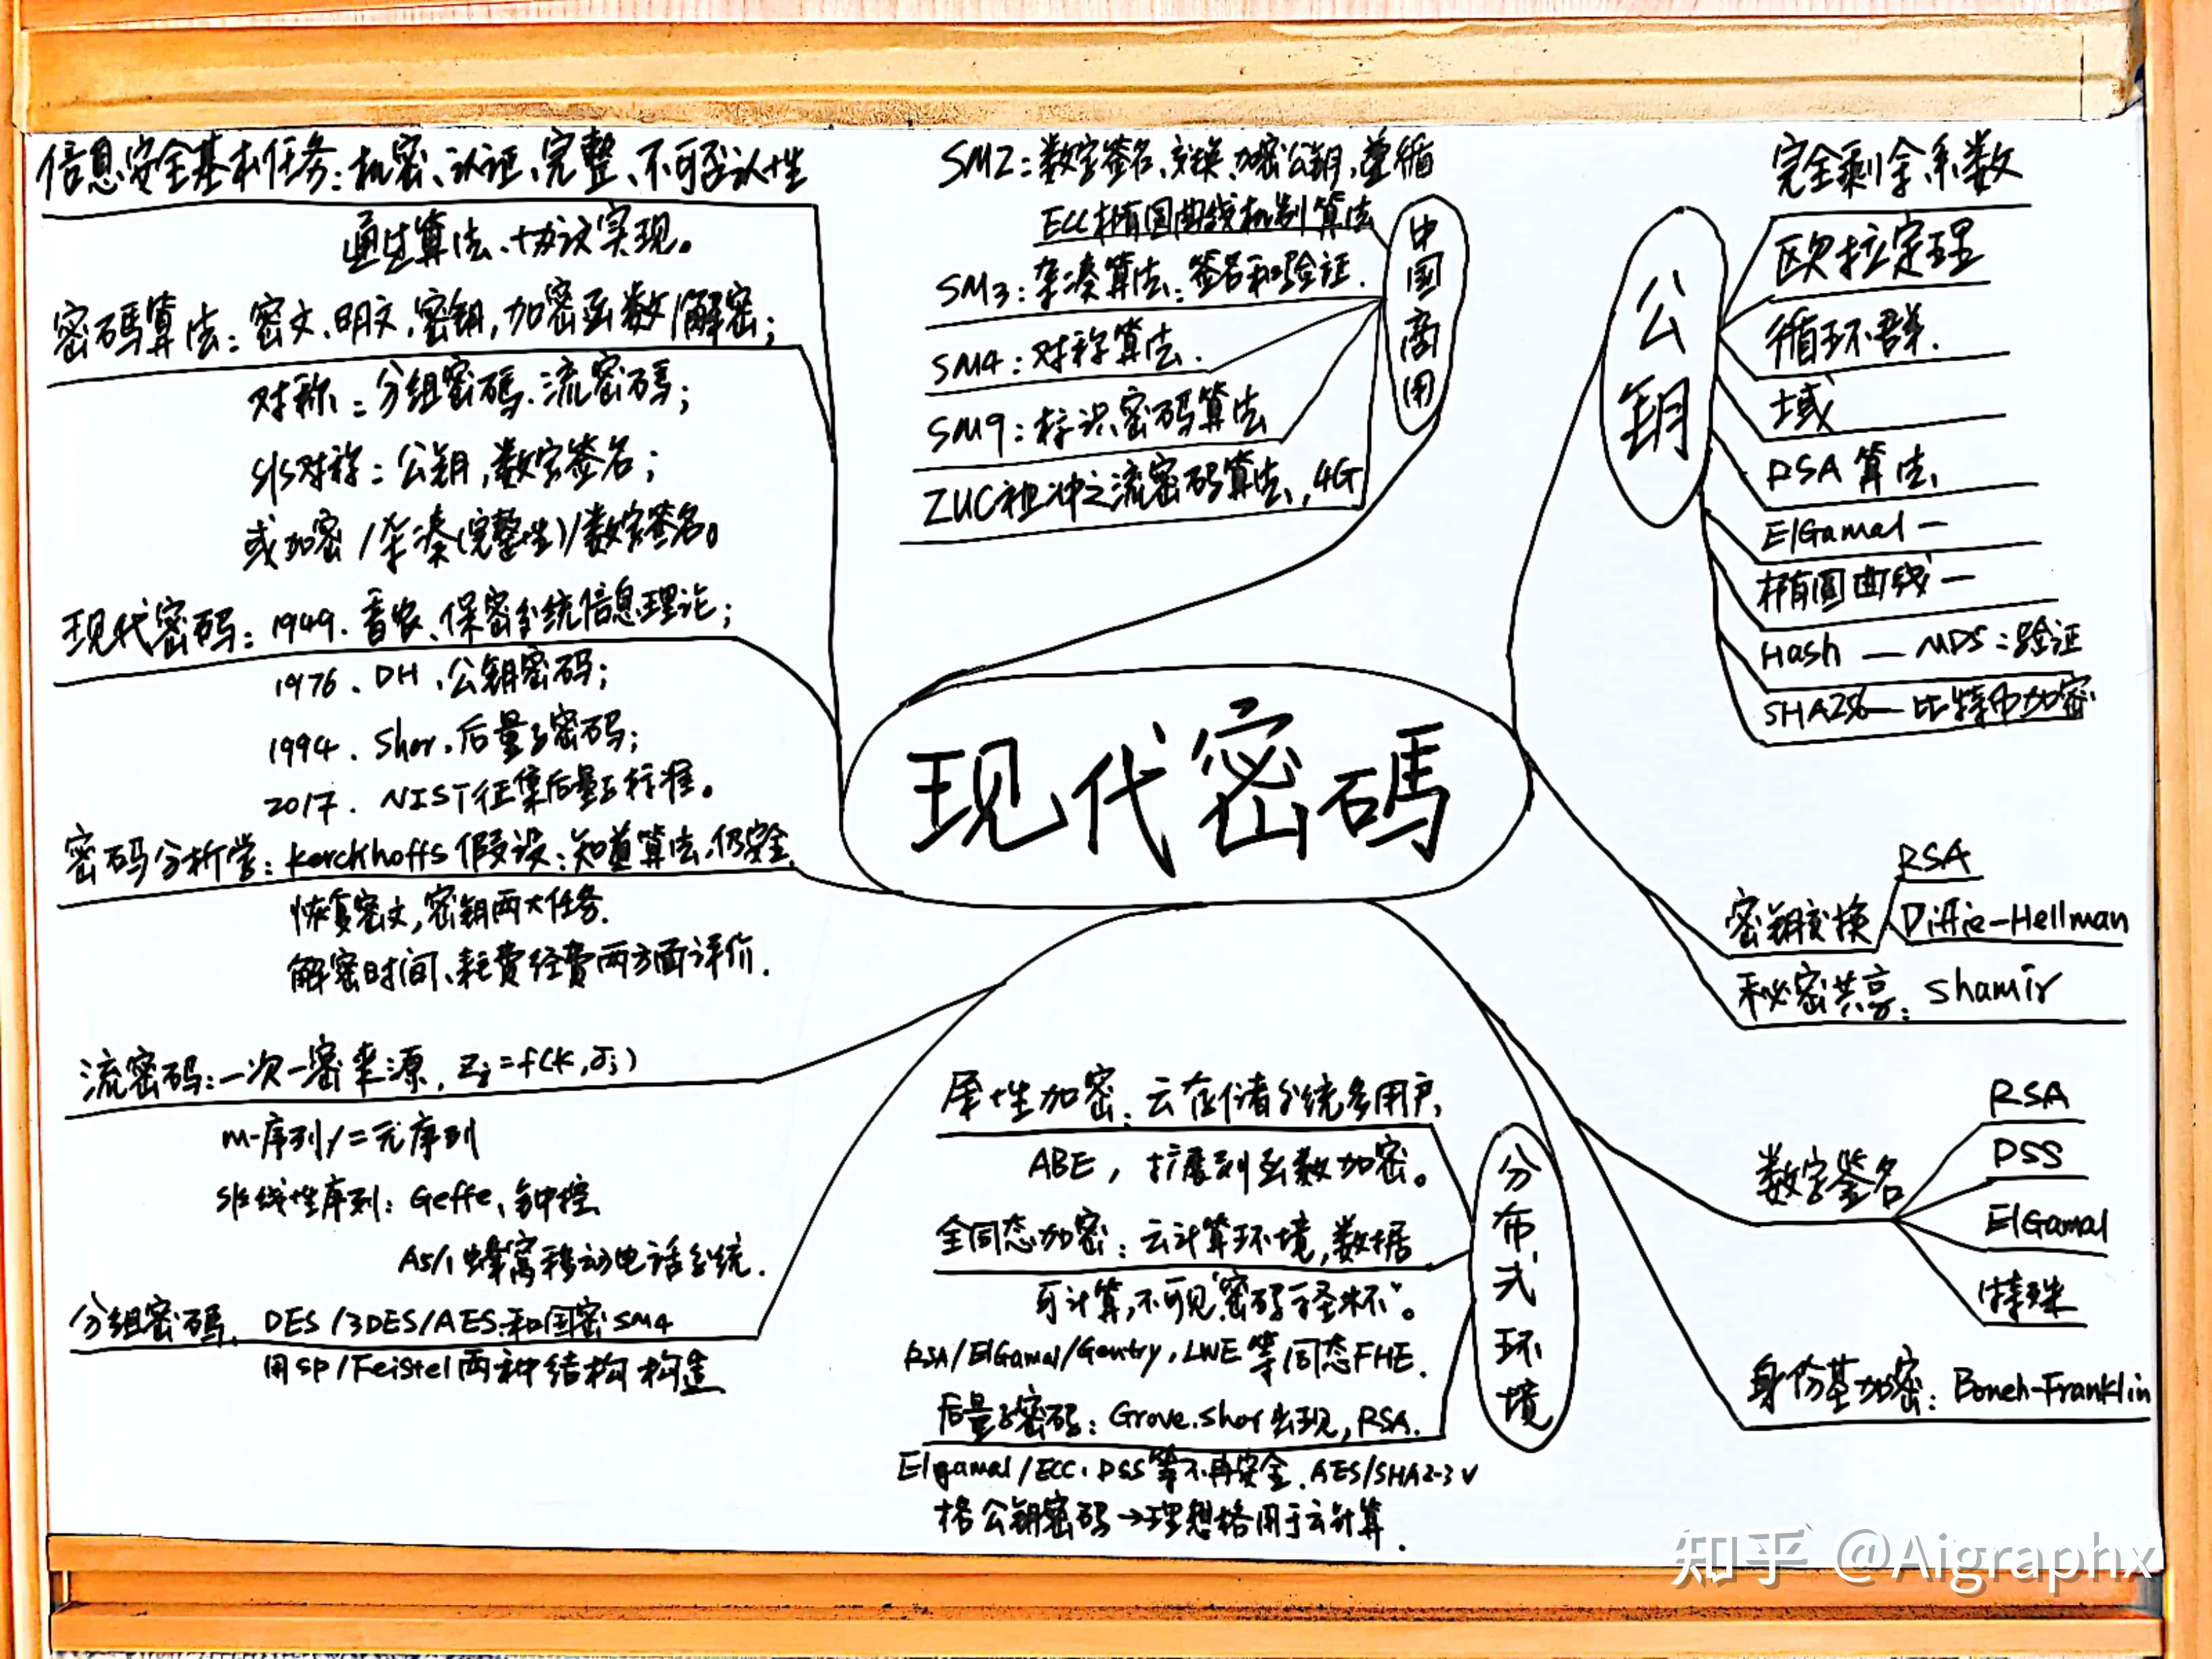 信息安全基本任务：机密、认证、完整、不可否认性
通过算法、协议实现。
密碼算法：密文、明文、密钥，加密函数/解密；
对称：分组密碼、流密碼；
非对称：公钥，数字签名；
或加密/杂凑(完整性)/数字签名。
现代密码：1949．香农、保密系统信息理论；
1976．DH、公钥密码；
1994．Shor．后量子密码；
2017．NIST征集后量子标准。
密码分析学：Kerckhoffs假设：知道算法，仍安全．
恢复密文，密钥两大任务．
解密时间、耗费经费两方面评价．
流密码：一次一密来源，Zj=f(K,σj)
m-序列/二元序列
非线性序列：Geffe、钟控
A5/1蜂窝移动电话系统．
分组密码．DES/3DES/AES和国密SM4
用SP/Feistel两种结构构造
SM2：数字签名、交换、加密公钥，遵循
ECC椭圆曲线机制算法
SM3：杂凑算法：签名和验证．
SM4：对称算法．
SM9：标识密码算法
ZUC祖冲之流密码算法，4G
中国商用
现代密碼
公钥
完全剩余系数
欧拉定理
循环群．
域
RSA算法
ElGamal—
椭圆曲线—
Hash — MD5：验证
SHA256—比特币加密
密钥交换
RSA
Diffie-Hellman
秘密共享：Shamir
数字签名
RSA
DSS
ElGamal
特殊
身份基加密：Boneh-Franklin
分布式环境
属性加密：云存储系统多用户，
ABE，扩展到函数加密。
全同态加密：云计算环境，数据
可计算，不可见“密码学圣杯”。
RSA/ElGamal/Gentry，LWE等同态FHE．
后量子密码：Grove.Shor出现，RSA．
Elgamal/ECC．DSS等不再安全．AES/SHA2-3√
格公钥密码→理想格用于云计算．
知乎 @Aigraphx